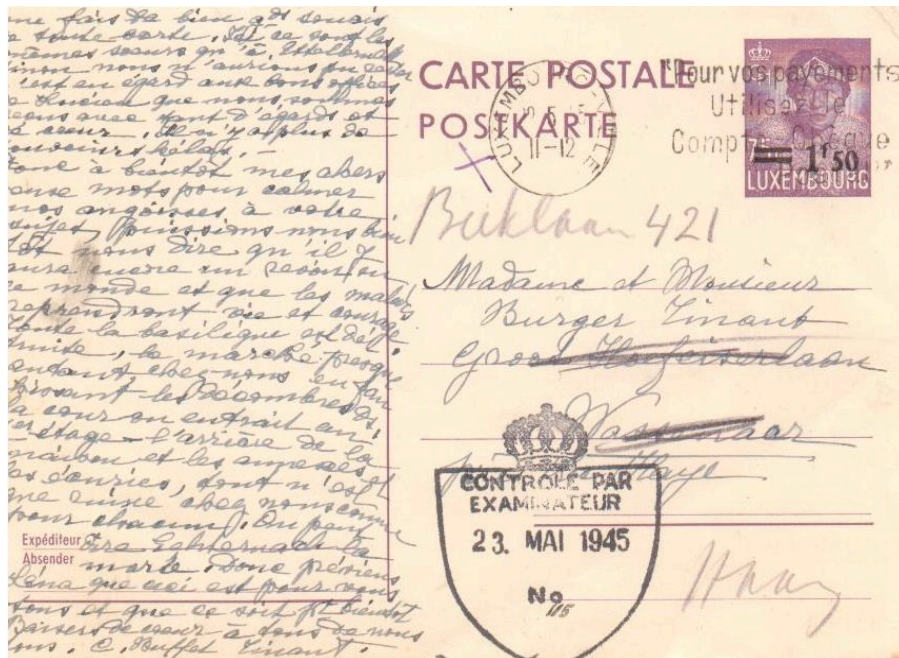 me fais da bien gds soucis
a toute carte. Ici ce sont les
mêmes soeurs qu'à Ettelbruck
sinon nous n'aurions pu
c'est en égard aux bons offices
de Lucien que nous sommes
reçus avec tant d'égards et
de coeur. Il n'y a plus de
souvenirs hélas.
Donc à bientôt mes chers
mots pour calmer
nos angoisses à votre
sujet, puissions nous bien
tôt nous dire qu'il y
aura encore un revoir en
ce monde et que les
reprendront vie et courage
toute la basilique est
truite, la marche presque
autant chez nous en
les décombres
la cour on entrait au
1er étage - l'arrière de la
maison et les annexes et
les écuries, tout n'est
que ruine chez nous comme
pour chacun. On peut
dire Echternach la
morte. Donc préviens
Léna que ceci est pour vous
tous et que ce soit pr bientôt
Baisers de coeur à tous de nous
tous. C. Buffet Tinant.
Expéditeur
Absender
CARTE POSTALE
POSTKARTE
LUXEMBOURG-VILLE
11-12
"Pour vos payements
Utilisez le
Compte Chèque
1f50
LUXEMBOURG
Beeklaan 421
Madame et Monsieur
Burger Tinant
Groot Hoefijzerlaan
Wassenaar
Haye
CONTROLÉ PAR
EXAMINATEUR
23. MAI 1945
No 115
Haag